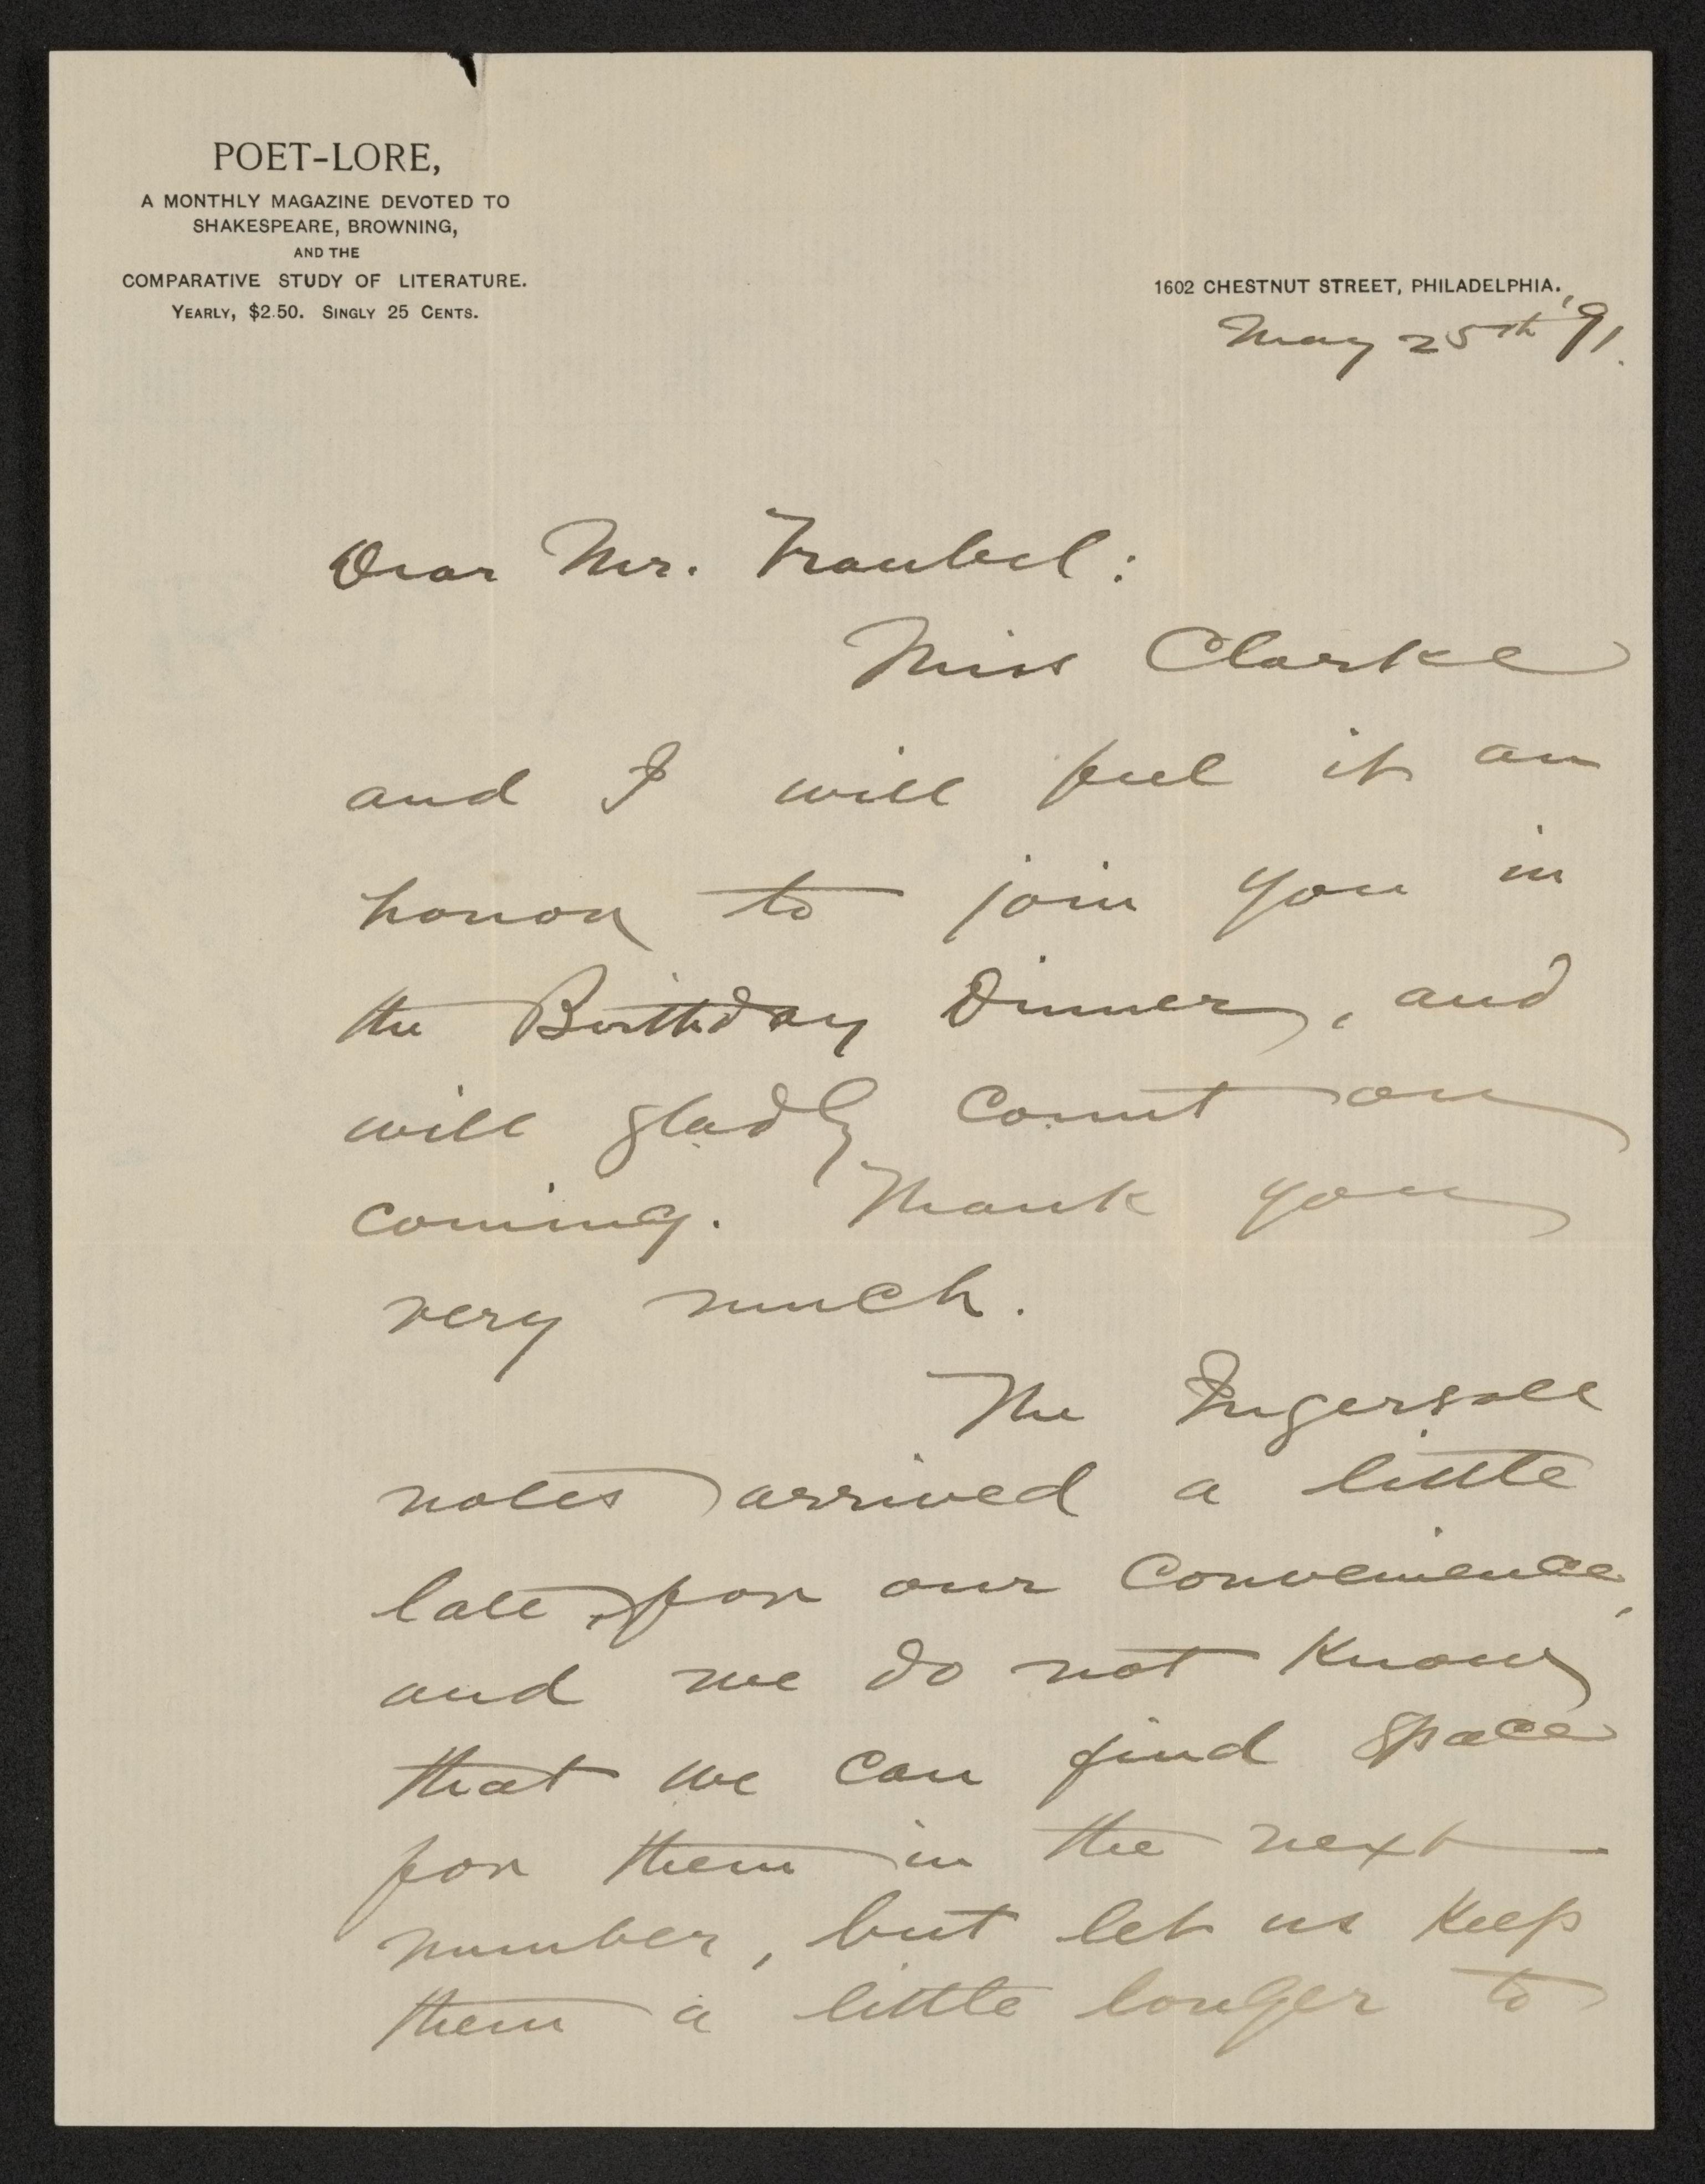 POET-LORE,
A MONTHLY MAGAZINE DEVOTED TO
SHAKESPEARE, BROWNING,
AND THE
COMPARATIVE STUDY OF LITERATURE.
YEARLY, $2.50. SINGLY 25 CENTS.
1602 CHESTNUT STREET, PHILADELPHIA.
May 25th '91.
Dear Mr. Traubel:
Miss Clarke
and I will feel it an
honor to join you in
the Birthday Dinner, and
will gladly count on
coming. Thank you
very much.
The Ingersoll
notes arrived a little
late for our convenience,
and we do not know
that we can find space
for them in the next
number, but let us keep
them a little longer to